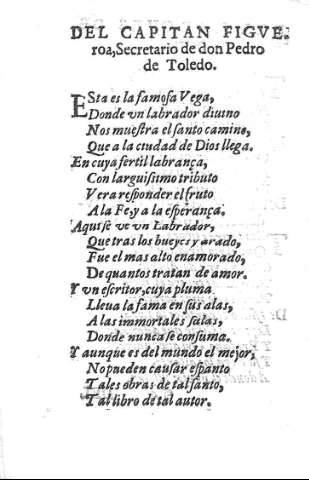 DEL CAPITAN FIGVE-
roa, Secretario de don Pedro
de Toledo.
ESta es la famosa Vega,
Donde vn labrador diuino
Nos muestra el santo camino,
Que a la ciudad de Dios llega.
En cuya fertil labrança,
Con larguissimo tributo
Vera responder el fruto
A la Fe, y a la esperança.
Aqui se ve vn Labrador,
Que tras los bueyes y arado,
Fue el mas alto enamorado,
De quantos tratan de amor.
Y vn escritor, cuya pluma
Lleua la fama en sus alas,
A las immortales salas,
Donde nunca se consuma.
Y aunque es del mundo el mejor,
No pueden causar espanto
Tales obras de tal santo,
Tal libro de tal autor.